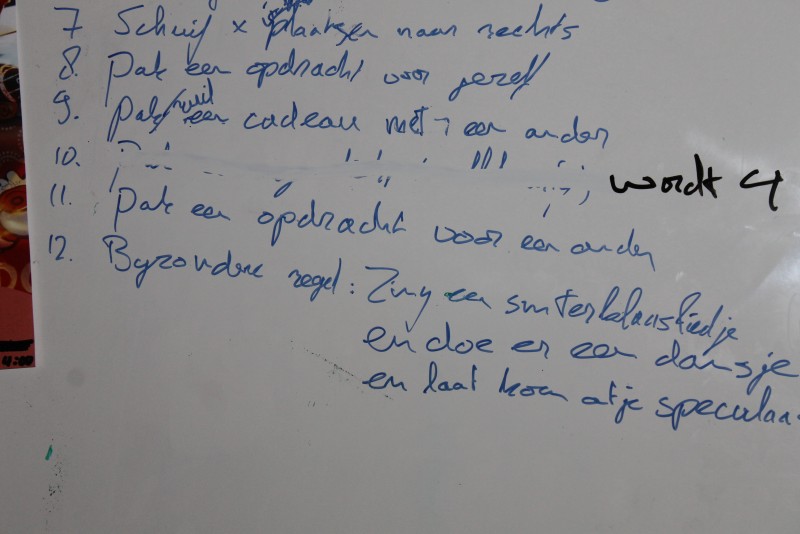 7 Schuif x plaatsen naar rechts
8. Pak een opdracht voor jezelf
9. ruil een cadeau met 1 een ander
10. wordt 4
11. Pak een opdracht voor een ander
12. Byzondere regel: Zing een sinterklaasliedje
en doe er een dansje
en laat hoen atje speculaa
4:00